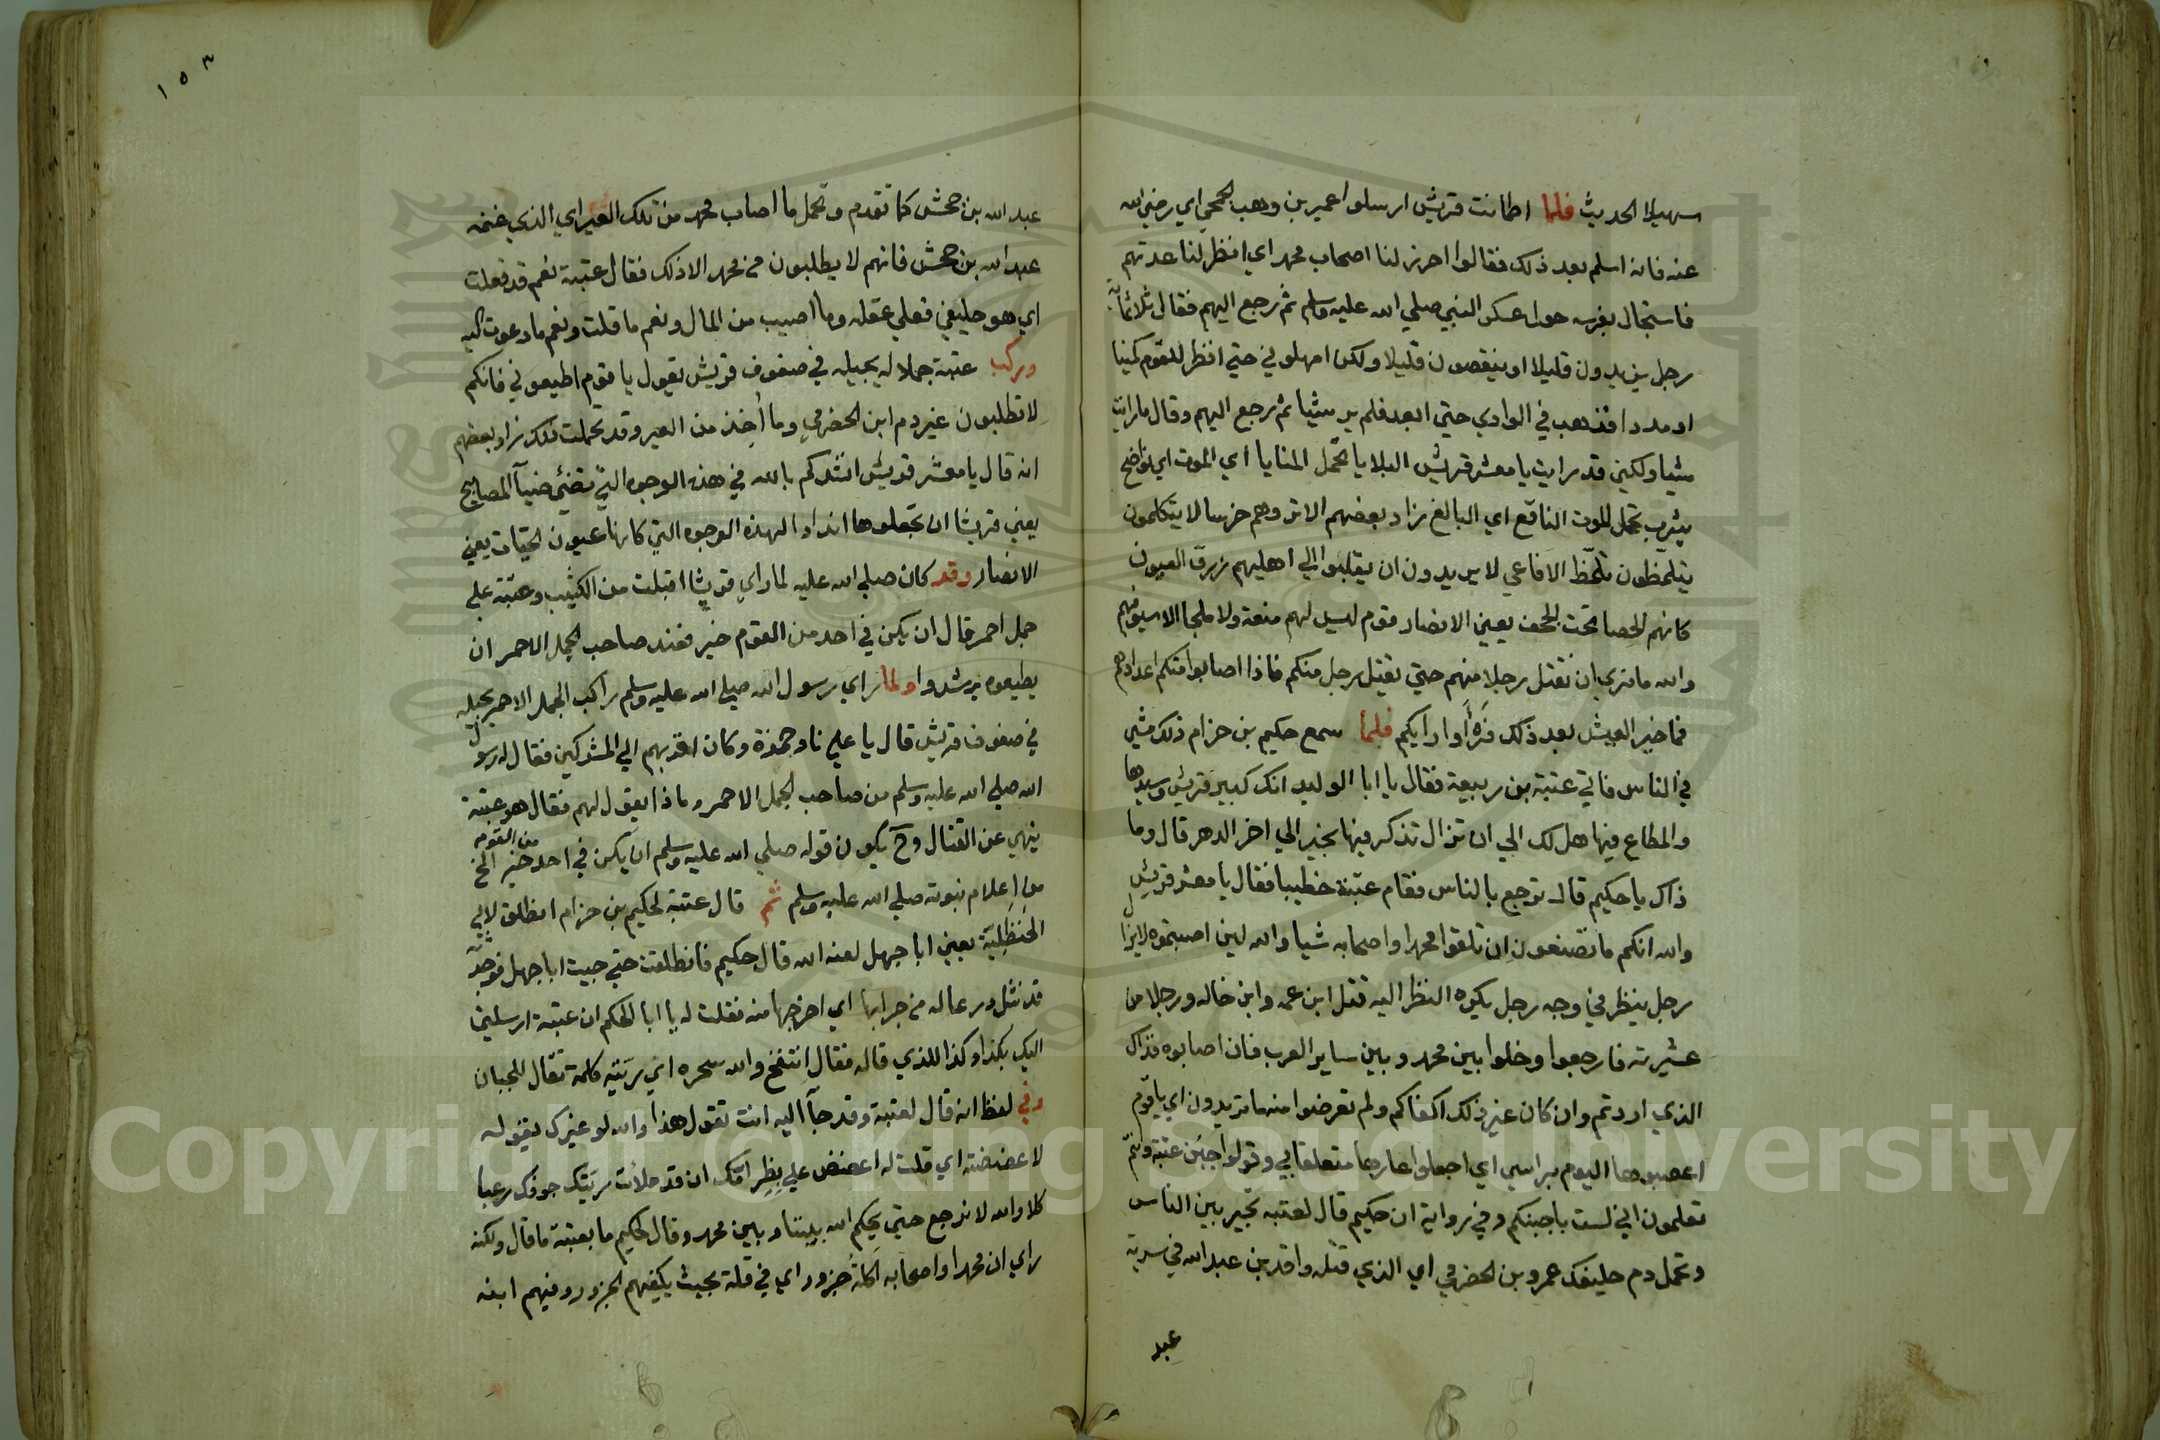 سهيلا الحديث فلما اطمانت قريش ارسلوا عمير بن وهب الجمحي اي رضي الله
عنه فانه اسلم بعد ذلك فقالوا احرز لنا اصحاب محمد اي انظر لنا عدتهم
فاستجال بفرسه حول عسكر النبي صلي الله عليه وسلم ثم رجع اليهم فقال ثلاثماية
رجل يزيدون قليلا او ينقصون قليلا ولكن امهلوني حتي انظر للقوم كمينا
او مددا فذهب في الوادي حتي ابعد فلم ير شيا ثم رجع اليهم وقال ما رايت
شيا ولكني قد رايت يا معشر قريش البلايا تحمل المنايا اي الموت اي نواضح
يثرب تحمل الموت الناقع اي البالغ زاد بعضهم الا تروهم خرسا لا يتكلمون
يتلمظون تلمظ الافاعي لا يريدون ان ينقلبوا الي اهليهم زرق العيون
كانهم الحصا تحت الحجف يعني الانصار قوم ليس لهم منعة ولا ملجا الا سيوفهم
والله ما نري ان نقتل رجلا منهم حتي يقتل رجل منكم فاذا اصابوا منكم اعدادهم
فما خير العيش بعد ذلك فرأوا رايكم فلما سمع حكيم بن حزام ذلك مشي
في الناس فاتي عتبة بن ربيعة فقال يا ابا الوليد انك كبير قريش وسيدها
والمطاع فيها هل لك الي ان تزال تذكر فيها بخير الي اخر الدهر قال وما
ذاك يا حكيم قال ترجع بالناس فقام عتبة خطيبا فقال يا معشر قريش
والله انكم ما تصنعون ان تلقوا محمدا واصحابه شيا والله لين اصبتموه لا يزال
رجل ينظر في وجه رجل يكره النظر اليه قتل ابن عمه وابن خاله ورجلا من
عشيرته فارجعوا وخلوا بين محمد وبين ساير العرب فان اصابوه فذاك
الذي اردتم وان كان غير ذلك اكفاكم ولم تعرضوا منه ما تريدون اي يا قوم
اعصبوها اليوم براسي اي اجعلوا عارها متعلقا بي وقولوا جبن عتبة وانتم
تعلمون اني لست باجبنكم وفي رواية ان حكيم قال لعتبه تجير بين الناس
وتحمل دم حليفك عمرو بن الحضرمي اي الذي قتله واقد بن عبد الله في سرية
عبد
١٥٣
عبد الله بن جحش كما تقدم وتحمل ما اصاب محمد من تلك العير اي الذي غنمه
عبد الله بن جحش فانهم لا يطلبون من محمد الا ذلك فقال عتبة نعم قد فعلت
اي هو حليفي فعلي عقله وما اصيب من المال ونعم ما قلت ونعم ما دعوت اليه
وركب عتبة جملا له يجيله في صفوف قريش يقول يا قوم اطيعوني فانكم
لا تطلبون غير دم ابن الحضرمي وما أخذ من العير وقد تحملت ذلك زاد بعضهم
انه قال يا معشر قريش انشدكم بالله في هذه الوجوه التي تضئ ضيآ المصابيح
يعني قريشا ان تجعلوها اندادا لهذه الوجوه التي كانها عيون الحيات يعني
الانصار وقد كان صلي الله عليه لما راي قريشا اقبلت من الكثيب وعتبة علي
جمل احمر قال ان يكن في احد من القوم خير فعند صاحب الجمل الاحمر ان
يطيعوه يرشدوا ولما راي رسول الله صلي الله عليه وسلم راكب الجمل الاحمر يجيله
في صفوف قريش قال يا علي ناد حمزة وكان اقربهم الي المشركين فقال له رسول
الله صلي الله عليه وسلم من صاحب الجمل الاحمر وماذا يقول لهم فقال هو عتبة
ينهي عن القتال وح يكون قوله صلي الله عليه وسلم ان يكن في احد من القوم خير الخ
من اعلام نبوته صلي الله عليه وسلم ثم قال عتبة لحكيم بن حزام انطلق لابن
الحنظلية يعني ابا جهل لعنه الله قال حكيم فانطلقت حتي جيت ابا جهل فوجدته
قد نثل درعا له من جرابها اي اخرجها منه فقلت له يا ابا الحكم ان عتبة ارسلني
اليك بكذا وكذا للذي قاله فقال انتفخ والله سحره اي ريته كلمة تقال للجبان
وفي لفظ انه قال لعتبة وقد جآ اليه انت تقول هذا والله لو غيرك يقوله
لاعضضته اي قلت له اعضض علي بظر امك ان قد ملات ريتك جوفك رعبا
كلا والله لا نرجع حتي يحكم الله بيننا وبين محمد وقال لحكيم ما بعتبة ما قال ولكنه
راي ان محمدا واصحابه اكلة جزور اي في قلة بحيث يكفيهم الجزور وفيهم ابنه
Copyright © King Saud University